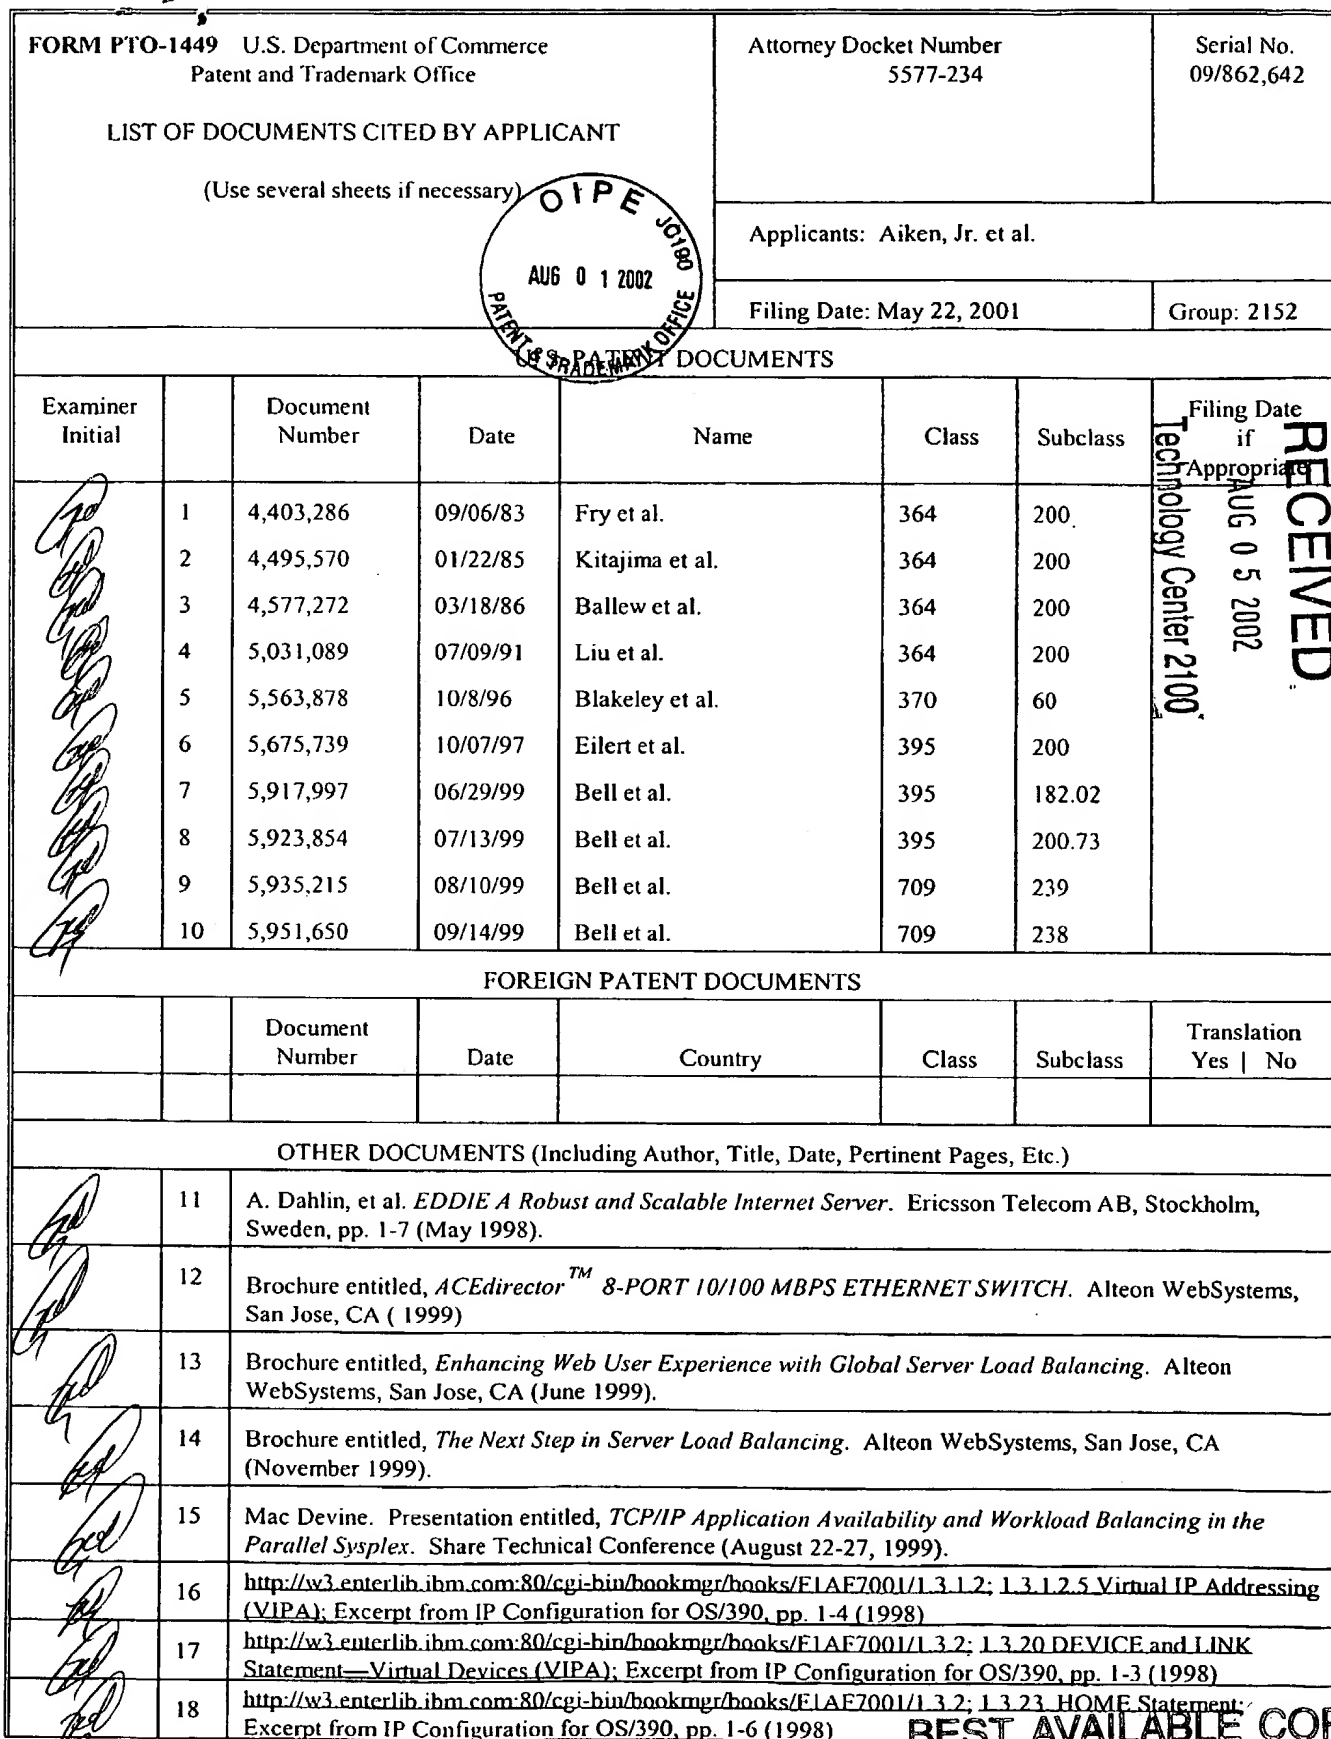 FORM PTO-1449 U.S. Department of Commerce
Patent and Trademark Office
LIST OF DOCUMENTS CITED BY APPLICANT
(Use several sheets if necessary)
Attorney Docket Number
5577-234
Serial No.
09/862,642
Applicants: Aiken, Jr. et al.
Filing Date: May 22, 2001
Group: 2152
OIPE JC180
AUG 0 1 2002
PATENT & TRADEMARK OFFICE
U.S. PATENT DOCUMENTS
Examiner Initial Document Number Date Name Class Subclass Filing Date if Appropriate
1 4,403,286 09/06/83 Fry et al. 364 200
2 4,495,570 01/22/85 Kitajima et al. 364 200
3 4,577,272 03/18/86 Ballew et al. 364 200
4 5,031,089 07/09/91 Liu et al. 364 200
5 5,563,878 10/8/96 Blakeley et al. 370 60
6 5,675,739 10/07/97 Eilert et al. 395 200
7 5,917,997 06/29/99 Bell et al. 395 182.02
8 5,923,854 07/13/99 Bell et al. 395 200.73
9 5,935,215 08/10/99 Bell et al. 709 239
10 5,951,650 09/14/99 Bell et al. 709 238
RECEIVED
AUG 0 5 2002
Technology Center 2100
FOREIGN PATENT DOCUMENTS
Document Number Date Country Class Subclass Translation Yes | No
OTHER DOCUMENTS (Including Author, Title, Date, Pertinent Pages, Etc.)
11 A. Dahlin, et al. EDDIE A Robust and Scalable Internet Server. Ericsson Telecom AB, Stockholm,
Sweden, pp. 1-7 (May 1998).
12 Brochure entitled, ACEdirector™ 8-PORT 10/100 MBPS ETHERNET SWITCH. Alteon WebSystems,
San Jose, CA ( 1999)
13 Brochure entitled, Enhancing Web User Experience with Global Server Load Balancing. Alteon
WebSystems, San Jose, CA (June 1999).
14 Brochure entitled, The Next Step in Server Load Balancing. Alteon WebSystems, San Jose, CA
(November 1999).
15 Mac Devine. Presentation entitled, TCP/IP Application Availability and Workload Balancing in the
Parallel Sysplex. Share Technical Conference (August 22-27, 1999).
16 http://w3.enterlib.ibm.com:80/cgi-bin/bookmgr/books/F1AF7001/1.3.1.2; 1.3.1.2.5 Virtual IP Addressing
(VIPA); Excerpt from IP Configuration for OS/390, pp. 1-4 (1998)
17 http://w3.enterlib.ibm.com:80/cgi-bin/bookmgr/books/F1AF7001/1.3.2; 1.3.20 DEVICE and LINK
Statement—Virtual Devices (VIPA); Excerpt from IP Configuration for OS/390, pp. 1-3 (1998)
18 http://w3.enterlib.ibm.com:80/cgi-bin/bookmgr/books/F1AF7001/1.3.2; 1.3.23 HOME Statement;
Excerpt from IP Configuration for OS/390, pp. 1-6 (1998)
BEST AVAILABLE COP